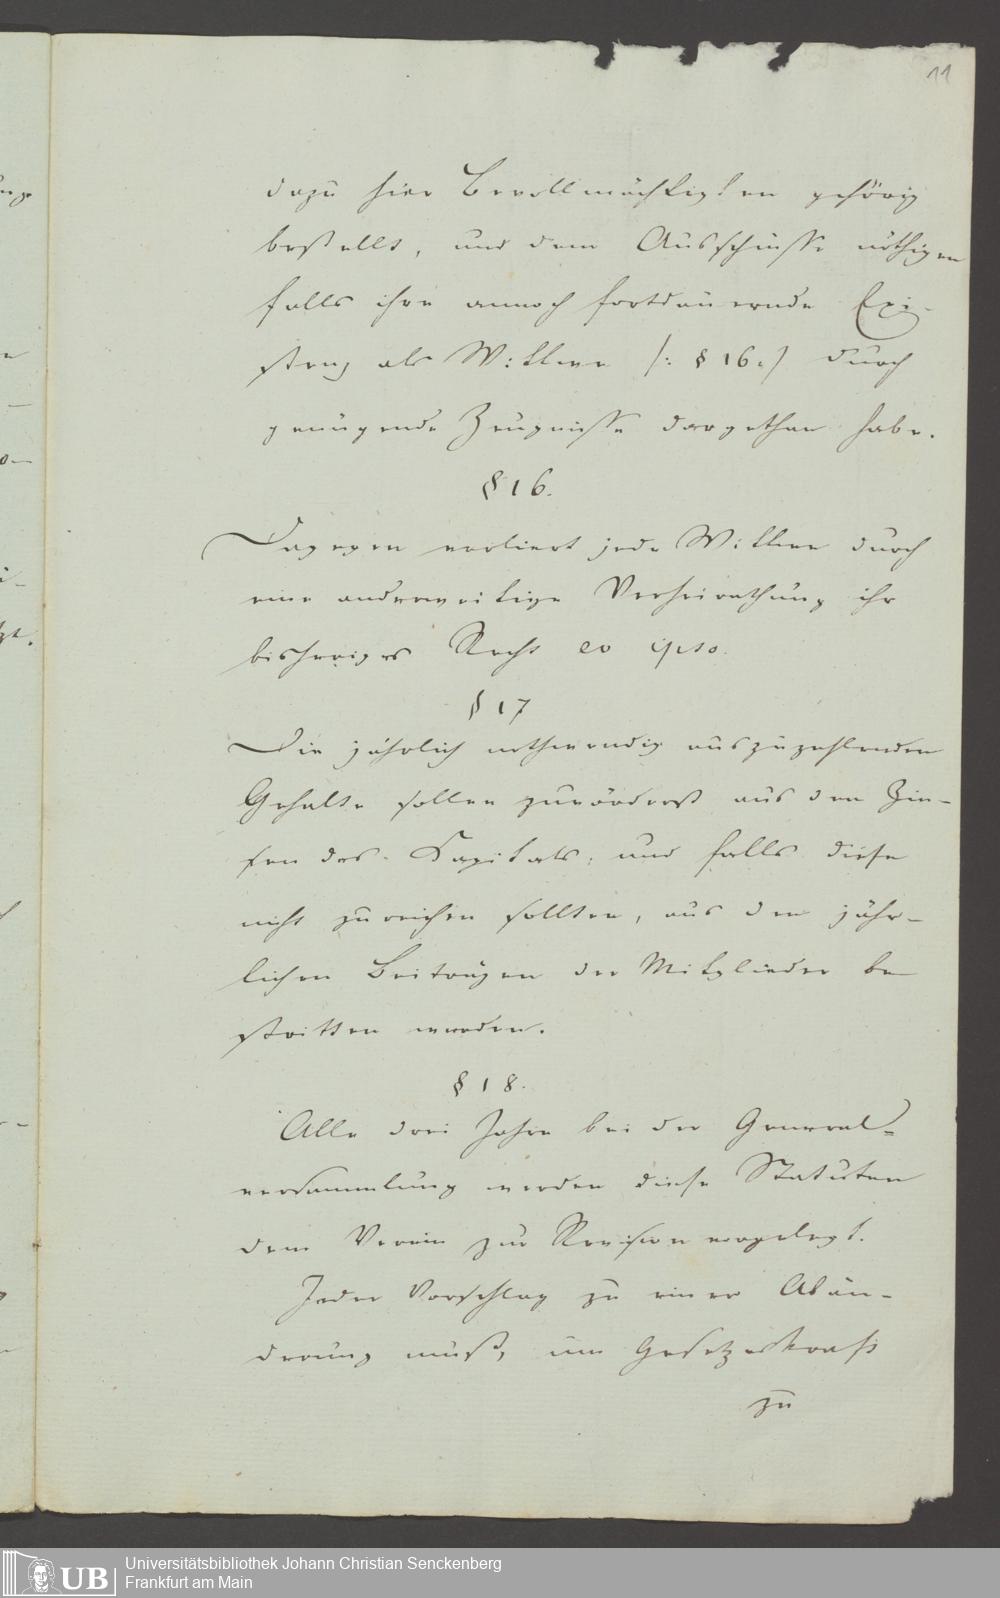 11
dazu hier Bevollmächtigten gehörig
bestellt, und dem Ausschusse nöthigen
falls ihre annoch fortdauernde Exi-
stenz als Wittwe /: § 16 :/ durch
genügende Zeugnisse dargethan habe.
§ 16.
Dagegen verliert jede Wittwe durch
eine anderweitige Verheirathung ihr
bisheriges Recht eo ipso.
§ 17
Die jährlich nothwendig auszuzahlenden
Gehalte sollen zuvörderst aus den Zin-
sen des Kapitals, und falls diese
nicht zureichen sollten, aus den jähr-
lichen Beiträgen der Mitglieder be
stritten werden.
§ 18.
Alle drei Jahre bei der General-
versammlung werden diese Statuten
dem Verein zur Revision vorgelegt.
Jeder Vorschlag zu einer Abän-
derung muß, um Gesetzeskraft
zu
UB
Universitätsbibliothek Johann Christian Senckenberg
Frankfurt am Main